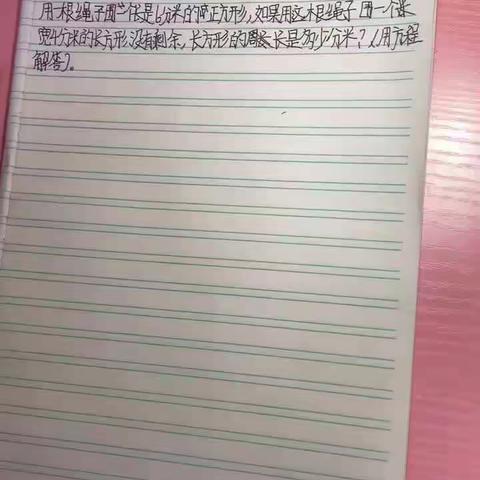 用一根绳子围边长是6分米的正方形,如果用这根绳子围一个
宽4分米的长方形没有剩余,长方形的长是多少分米?(用方程
解答)。